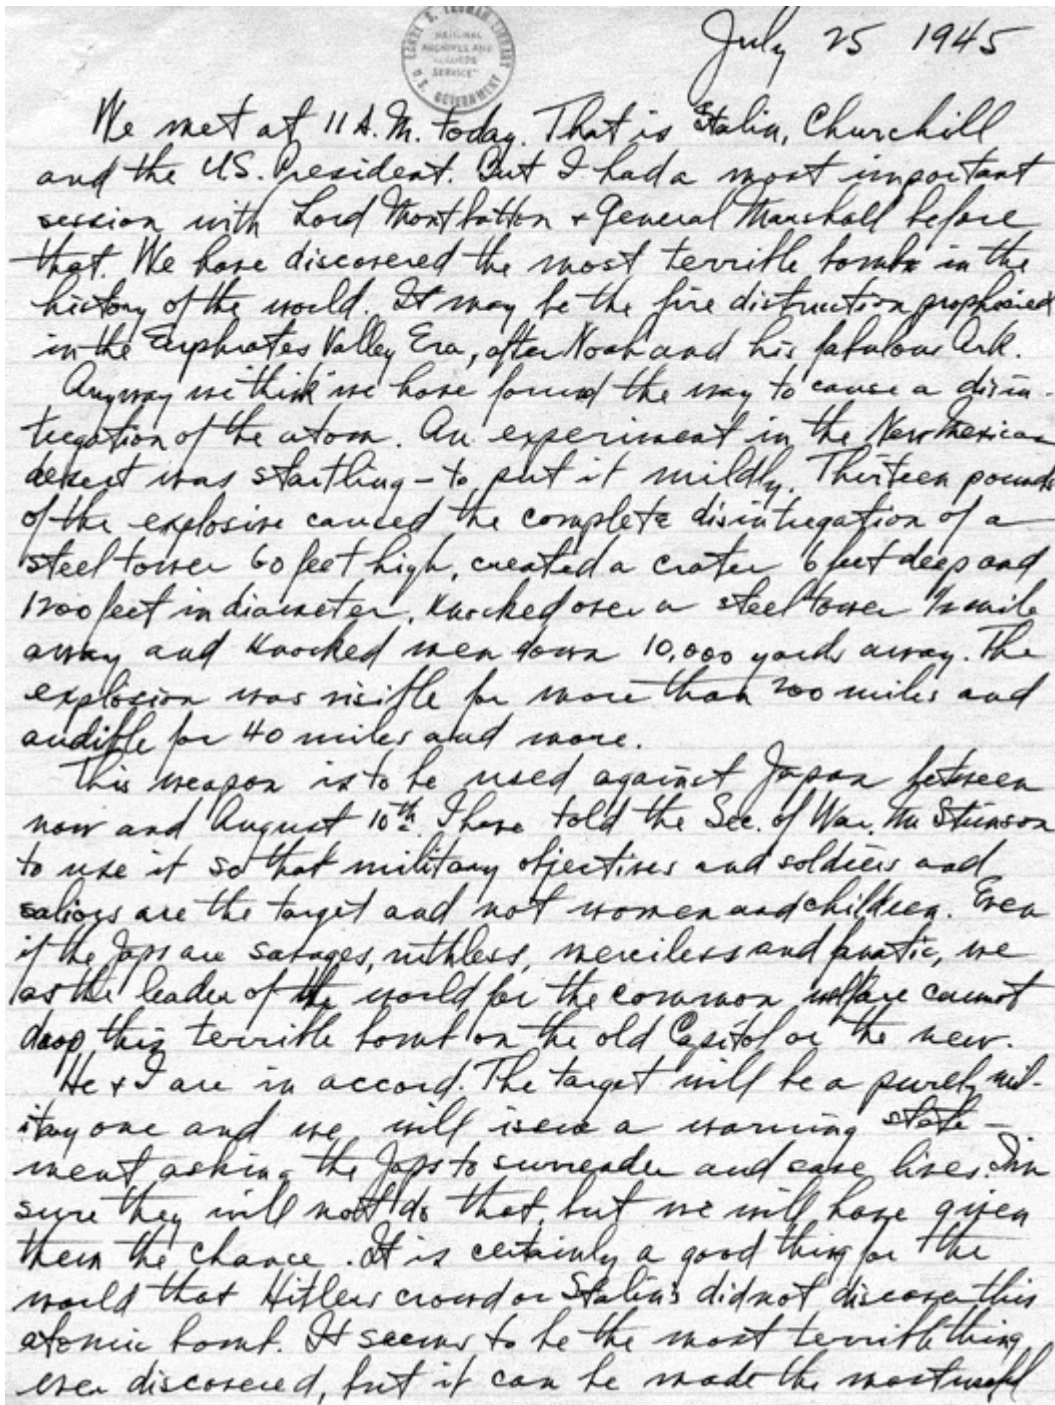 HARRY S. TRUMAN LIBRARY
NATIONAL
ARCHIVES AND
RECORDS
SERVICE
U.S. GOVERNMENT
July 25 1945
We met at 11 A.M. today. That is Stalin, Churchill
and the US. President. But I had a most important
session with Lord Montbatton + General Marshall before
that. We have discovered the most terrible bomb in the
history of the world. It may be the fire distruction prophesied
in the Euphrates Valley Era, after Noah and his fabulous Ark.
Anyway we think we have found the way to cause a disin-
tegration of the atom. An experiment in the New Mexican
desert was startling - to put it mildly. Thirteen pounds
of the explosive caused the complete disintegration of a
steel tower 60 feet high, created a crater 6 feet deep and
1200 feet in diameter, knocked over a steel tower 1/2 mile
away and knocked men down 10,000 yards away. The
explosion was visible for more than 200 miles and
audible for 40 miles and more.
This weapon is to be used against Japan between
now and August 10th. I have told the Sec. of War, Mr Stimson
to use it so that military objectives and soldiers and
saliors are the target and not women and children. Even
if the Japs are savages, ruthless, merciless and fanatic, we
as the leader of the world for the common welfare cannot
drop this terrible bomb on the old Capitol or the new.
He + I are in accord. The target will be a purely mil-
itary one and we will issue a warning state-
ment asking the Japs to surrender and save lives. I'm
sure they will not do that, but we will have given
them the chance. It is certainly a good thing for the
world that Hitlers crowd or Stalin's did not discover this
atomic bomb. It seems to be the most terrible thing
ever discovered, but it can be made the most useful